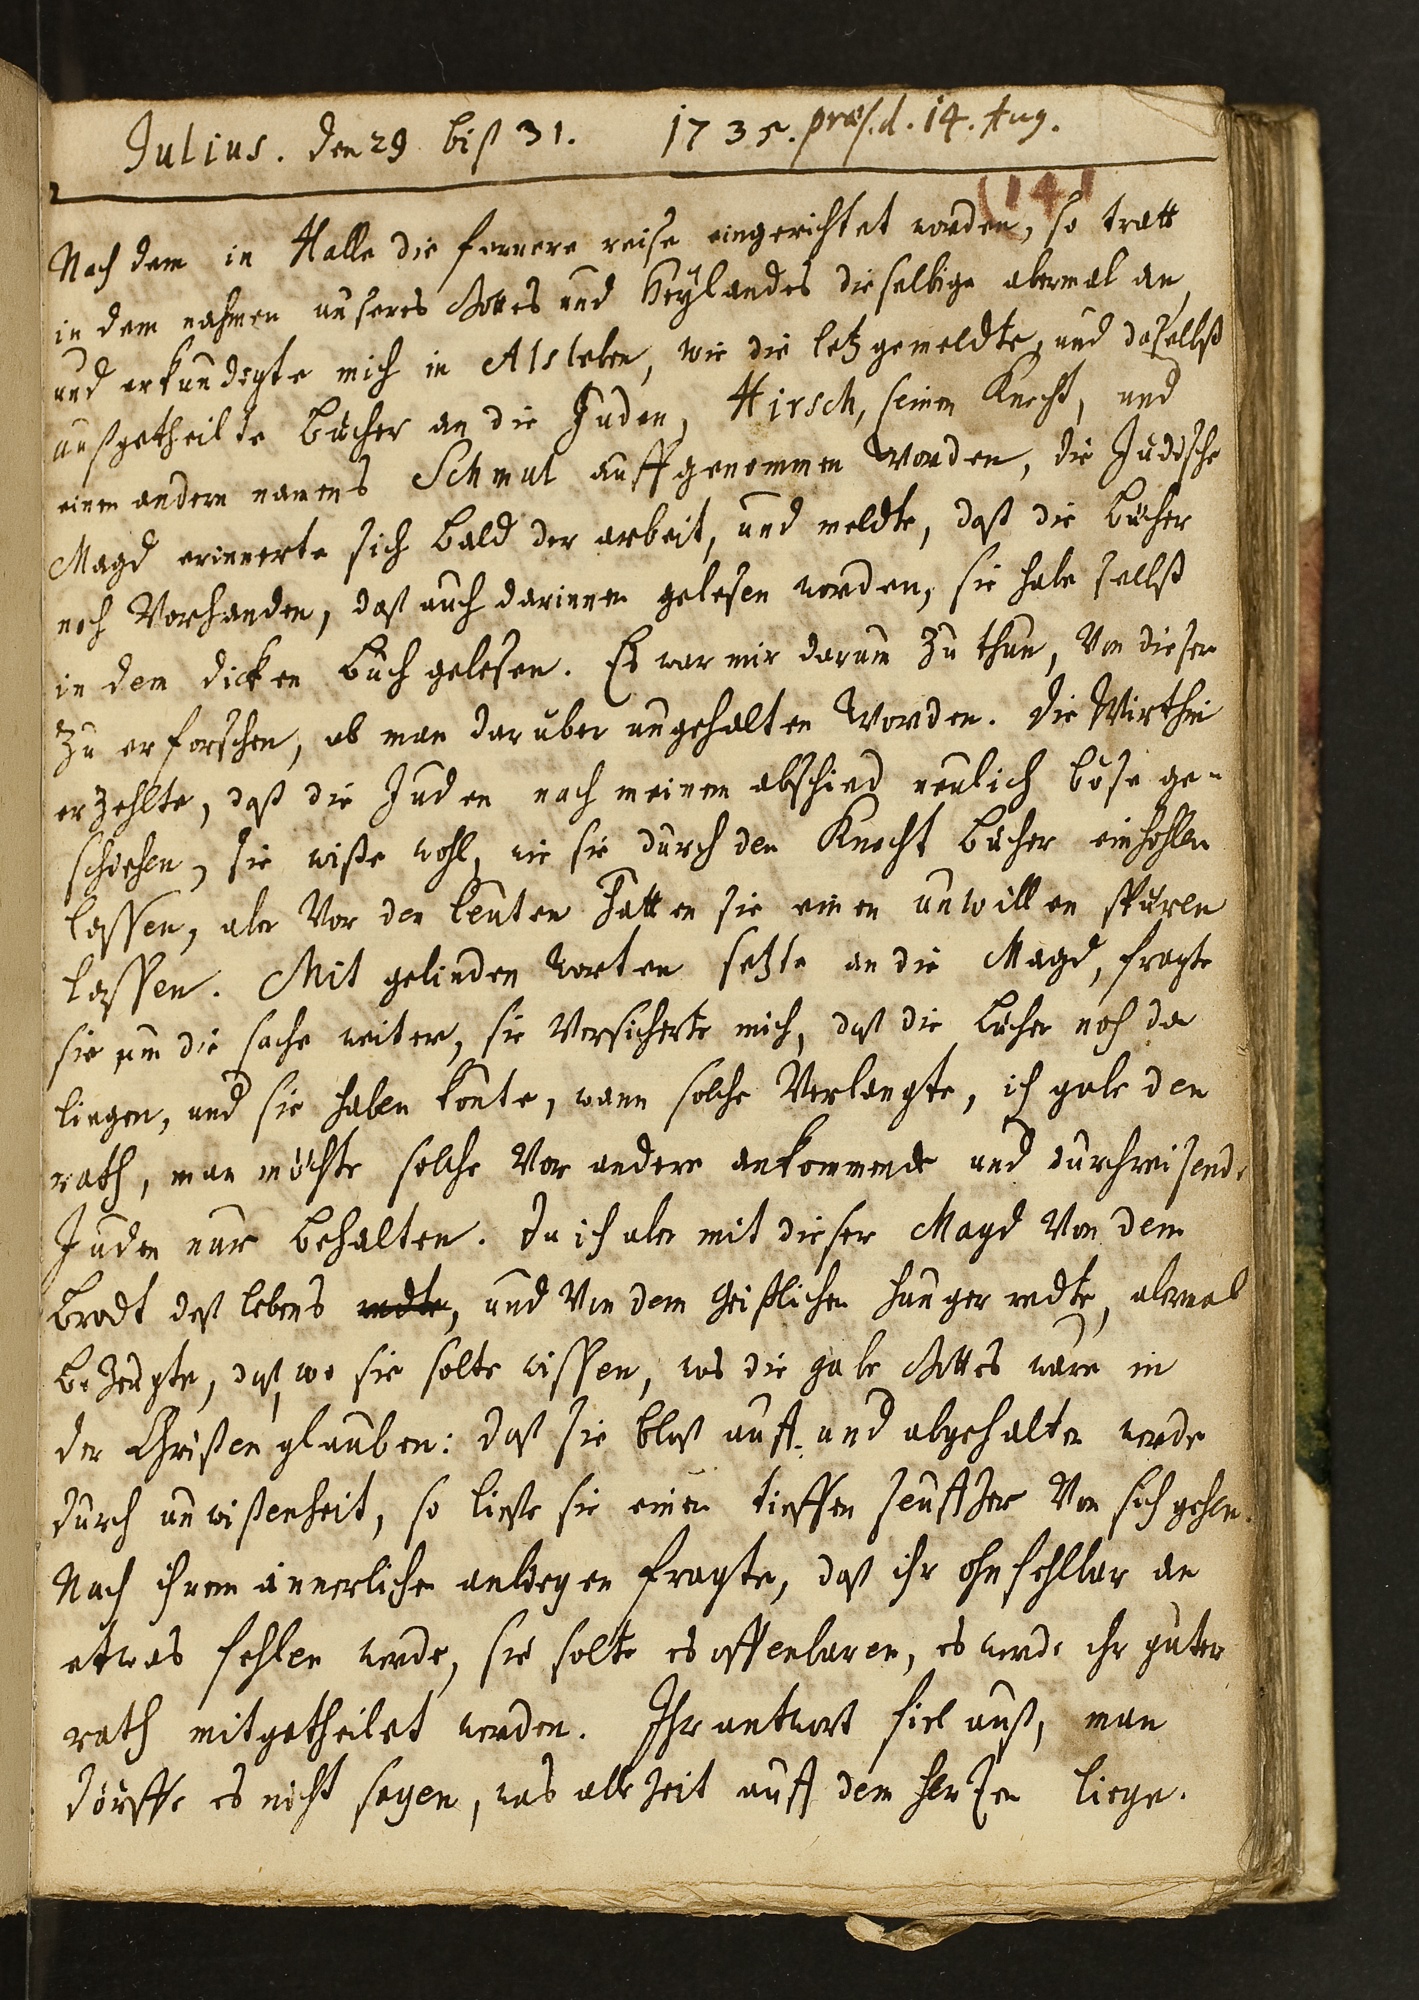 Julius. den 29 biß 31. 1735. præs. d. 14. Aug.
(141
Nach dem in Halle die fernere reise eingerichtet worden, so tratt
in dem nahmen unseres Gottes und Heÿlandes dieselbige abermal an,
und erkundigte mich in Alsleben, wie die letz gemeldte, und daselbst
außgetheilte bücher an die Juden, Hirsch, seinen Knecht, und
einen andern namens Schmul auffgenommen worden, die Jüdische
Magd erinnerte sich bald der arbeit, und meldte, daß die bücher
noch vorhanden, daß auch darinnen gelesen worden, sie habe selbst
in dem dicken buch gelesen. Es war mir darum zu thun, von dieser
zu erforschen, ob man darüber ungehalten worden. die Wirthin
erzehlte, daß die Juden nach meinem abschied neulich böse ge-
schiehen, sie wiße wohl, wie sie durch den Knecht bücher einhohlen
lassen, aber vor den leuten hatten sie einen unwillen spüren
lassen. Mit gelinden worten setzte an die Magd, fragte
sie um die sache weiter, sie versicherte mich, daß die bücher noch da
liegen, und sie haben könte, wann solche verlangte, ich gabe den
rath, man möchte solche vor andere ankommende und durchreisende
Juden nur behalten. Da ich aber mit dieser Magd von dem
brodt deß lebens redte, und von dem geistlichen hunger redte, abermal
bezeugte, daß, wo sie solte wissen, was die gabe Gottes wäre in
der Christen glauben: daß sie bloß auff- und abgehalten werde
durch unwißenheit, so ließe sie einen tieffen seuffzer von sich gehen.
Nach ihrem innerlichen anliegen fragte, daß ihr ohnfehlbar an
etwas fehlen werde, sie solte es offenbaren, es werde ihr guter
rath mitgetheilet werden. Ihr antwort fiel auß, man
dörffe es nicht sagen, was alle Zeit auff dem herzen liege.